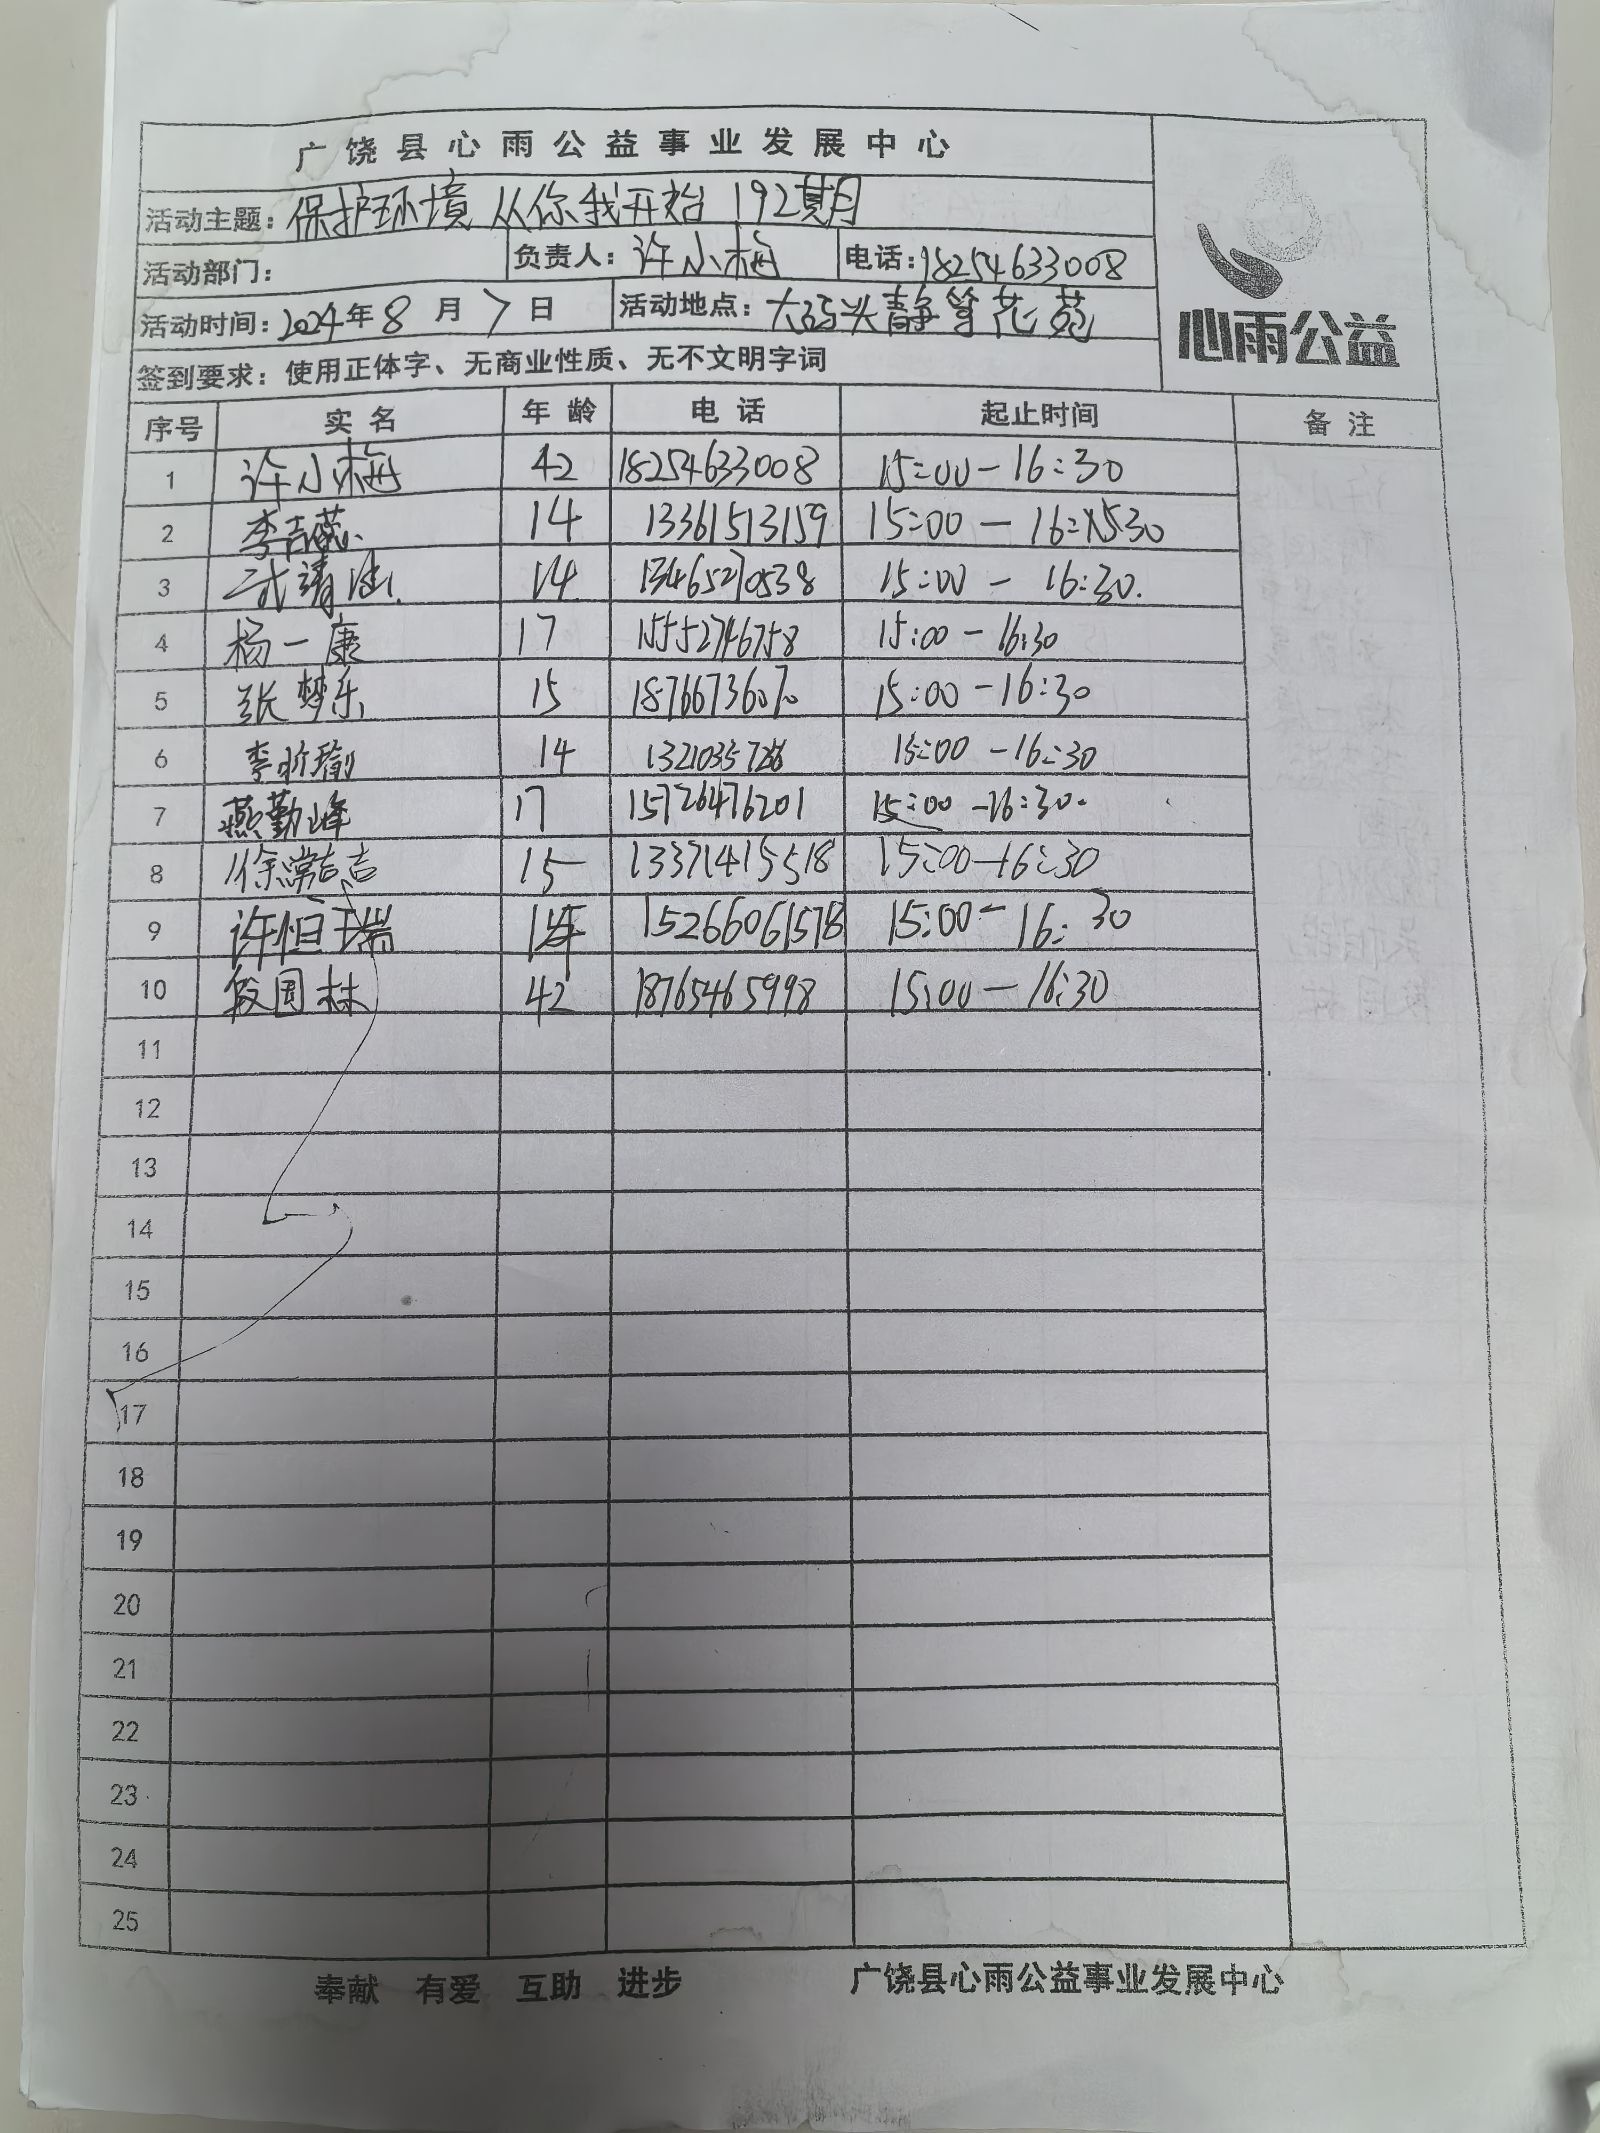 广饶县心雨公益事业发展中心
活动主题：保护环境 从你我开始 192期
活动部门： 负责人：许小梅 电话：18254633008
活动时间：2024年8月7日 活动地点：大码头静等花苑
心雨公益
签到要求：使用正体字、无商业性质、无不文明字词
序号 实名 年龄 电话 起止时间 备注
1 许小梅 42 18254633008 15:00-16:30
2 李吉蕊 14 13361513159 15:00-16:30
3 武靖 14 13465270538 15:00-16:30.
4 杨一康 17 15552746758 15:00-16:30
5 张梦乐 15 18766736070 15:00-16:30
6 李昕瑜 14 15:00-16:30
7 燕勤峰 17 15726476201 15:00-16:30.
8 徐常吉吉 15 13371415518 15:00-16:30
9 许恒瑞 15266061578 15:00-16:30
10 段国林 42 18765465998 15:00-16:30
11
12
13
14
15
16
17
18
19
20
21
22
23
24
25
奉献 有爱 互助 进步 广饶县心雨公益事业发展中心